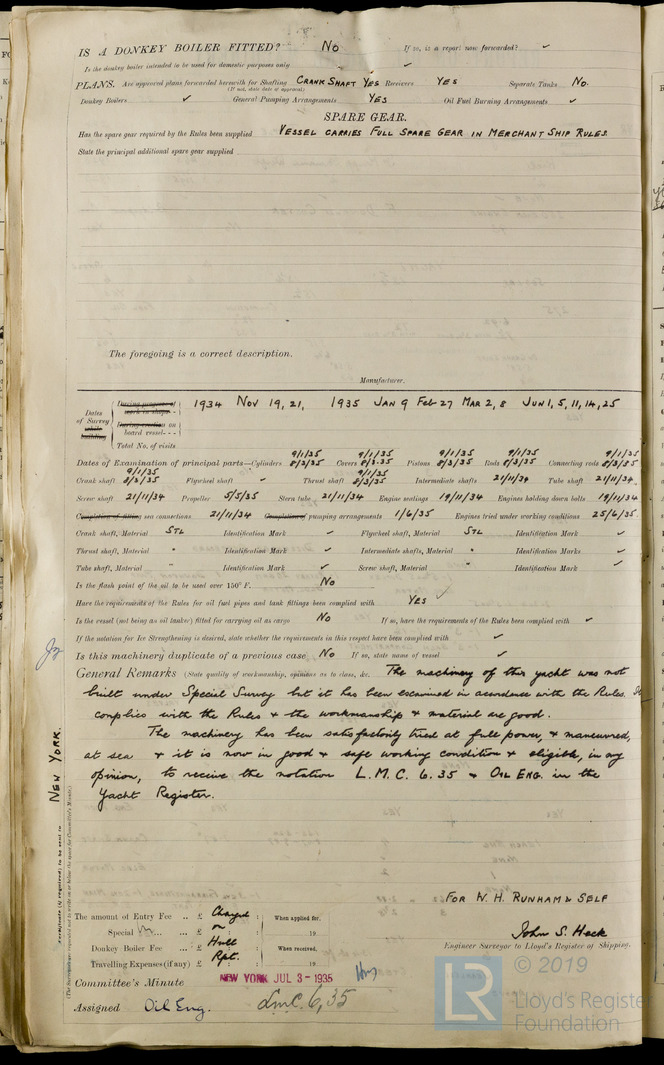 IS A DONKEY BOILER FITTED? No If so, is a report now forwarded? ✓
Is the donkey boiler intended to be used for domestic purposes only ✓
PLANS. Are approved plans forwarded herewith for Shafting CRANK SHAFT YES Receivers YES Separate Tanks No.
(If not, state date of approval)
Donkey Boilers ✓ General Pumping Arrangements YES Oil Fuel Burning Arrangements ✓
SPARE GEAR.
Has the spare gear required by the Rules been supplied VESSEL CARRIES FULL SPARE GEAR IN MERCHANT SHIP RULES.
State the principal additional spare gear supplied
The foregoing is a correct description.
Manufacturer.
Dates of Survey while building
During progress of work in shops - -
During erection on board vessel - - -
Total No. of visits
1934 NOV 19, 21, 1935 JAN 9 FEB 27 MAR 2, 8 JUN 1, 5, 11, 14, 25
Dates of Examination of principal parts—Cylinders 9/1/35 8/3/35 Covers 9/1/35 8/3/35 Pistons 9/1/35 8/3/35 Rods 9/1/35 8/3/35 Connecting rods 9/1/35 8/3/35
Crank shaft 9/1/35 8/3/35 Flywheel shaft ✓ Thrust shaft 9/1/35 8/3/35 Intermediate shafts 21/11/34 Tube shaft 21/11/34
Screw shaft 21/11/34 Propeller 5/5/35 Stern tube 21/11/34 Engine seatings 19/11/34 Engines holding down bolts 19/11/34
Completion of fitting sea connections 21/11/34 Completion of pumping arrangements 1/6/35 Engines tried under working conditions 25/6/35
Crank shaft, Material STL Identification Mark ✓ Flywheel shaft, Material STL Identification Mark ✓
Thrust shaft, Material " Identification Mark ✓ Intermediate shafts, Material " Identification Marks ✓
Tube shaft, Material " Identification Mark ✓ Screw shaft, Material " Identification Mark ✓
Is the flash point of the oil to be used over 150° F. No
Have the requirements of the Rules for oil fuel pipes and tank fittings been complied with YES ✓
Is the vessel (not being an oil tanker) fitted for carrying oil as cargo No If so, have the requirements of the Rules been complied with ✓
If the notation for Ice Strengthening is desired, state whether the requirements in this respect have been complied with ✓
Is this machinery duplicate of a previous case No If so, state name of vessel ✓
General Remarks (State quality of workmanship, opinions as to class, &c. The machinery of this yacht was not
built under Special Survey but it has been examined in accordance with the Rules. It
complies with the Rules & the workmanship & material are good.
The machinery has been satisfactorily tried at full power, & maneuvred,
at sea & it is now in good & safe working condition & eligible, in my
opinion, to receive the notation L.M.C. 6.35 & OIL ENG. in the
Yacht Register.
NEW YORK.
Certificate (if required) to be sent to
(The Surveyors are requested not to write on or below the space for Committee's Minute.)
FOR W. H. RUNHAM & SELF
John S. Heck
Engineer Surveyor to Lloyd's Register of Shipping.
The amount of Entry Fee .. £ Charged : When applied for,
Special ... ... £ on : 19
Donkey Boiler Fee ... £ Hull : When received,
Travelling Expenses (if any) £ Rpt. : 19
Committee's Minute NEW YORK JUL 3 - 1935
Assigned Oil Eng. LMC. 6,35
© 2019
LR
Lloyd's Register
Foundation